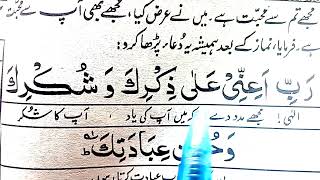 مجھے تم سے محبت ہے۔ میں نے عرض کیا، مجھے بھی آپ سے محبت
ہے۔ فرمایا، نماز کے بعد ہمیشہ یہ دُعاء پڑھا کرو:
رَبِّ اَعِنِّیْ عَلٰی ذِکْرِكَ وَ شُکْرِكَ
الٰہی! مجھے مدد دے کہ میں آپ کی یاد، آپ کا شکر
عِبَادَتِكَ
عبادت کرتا رہوں